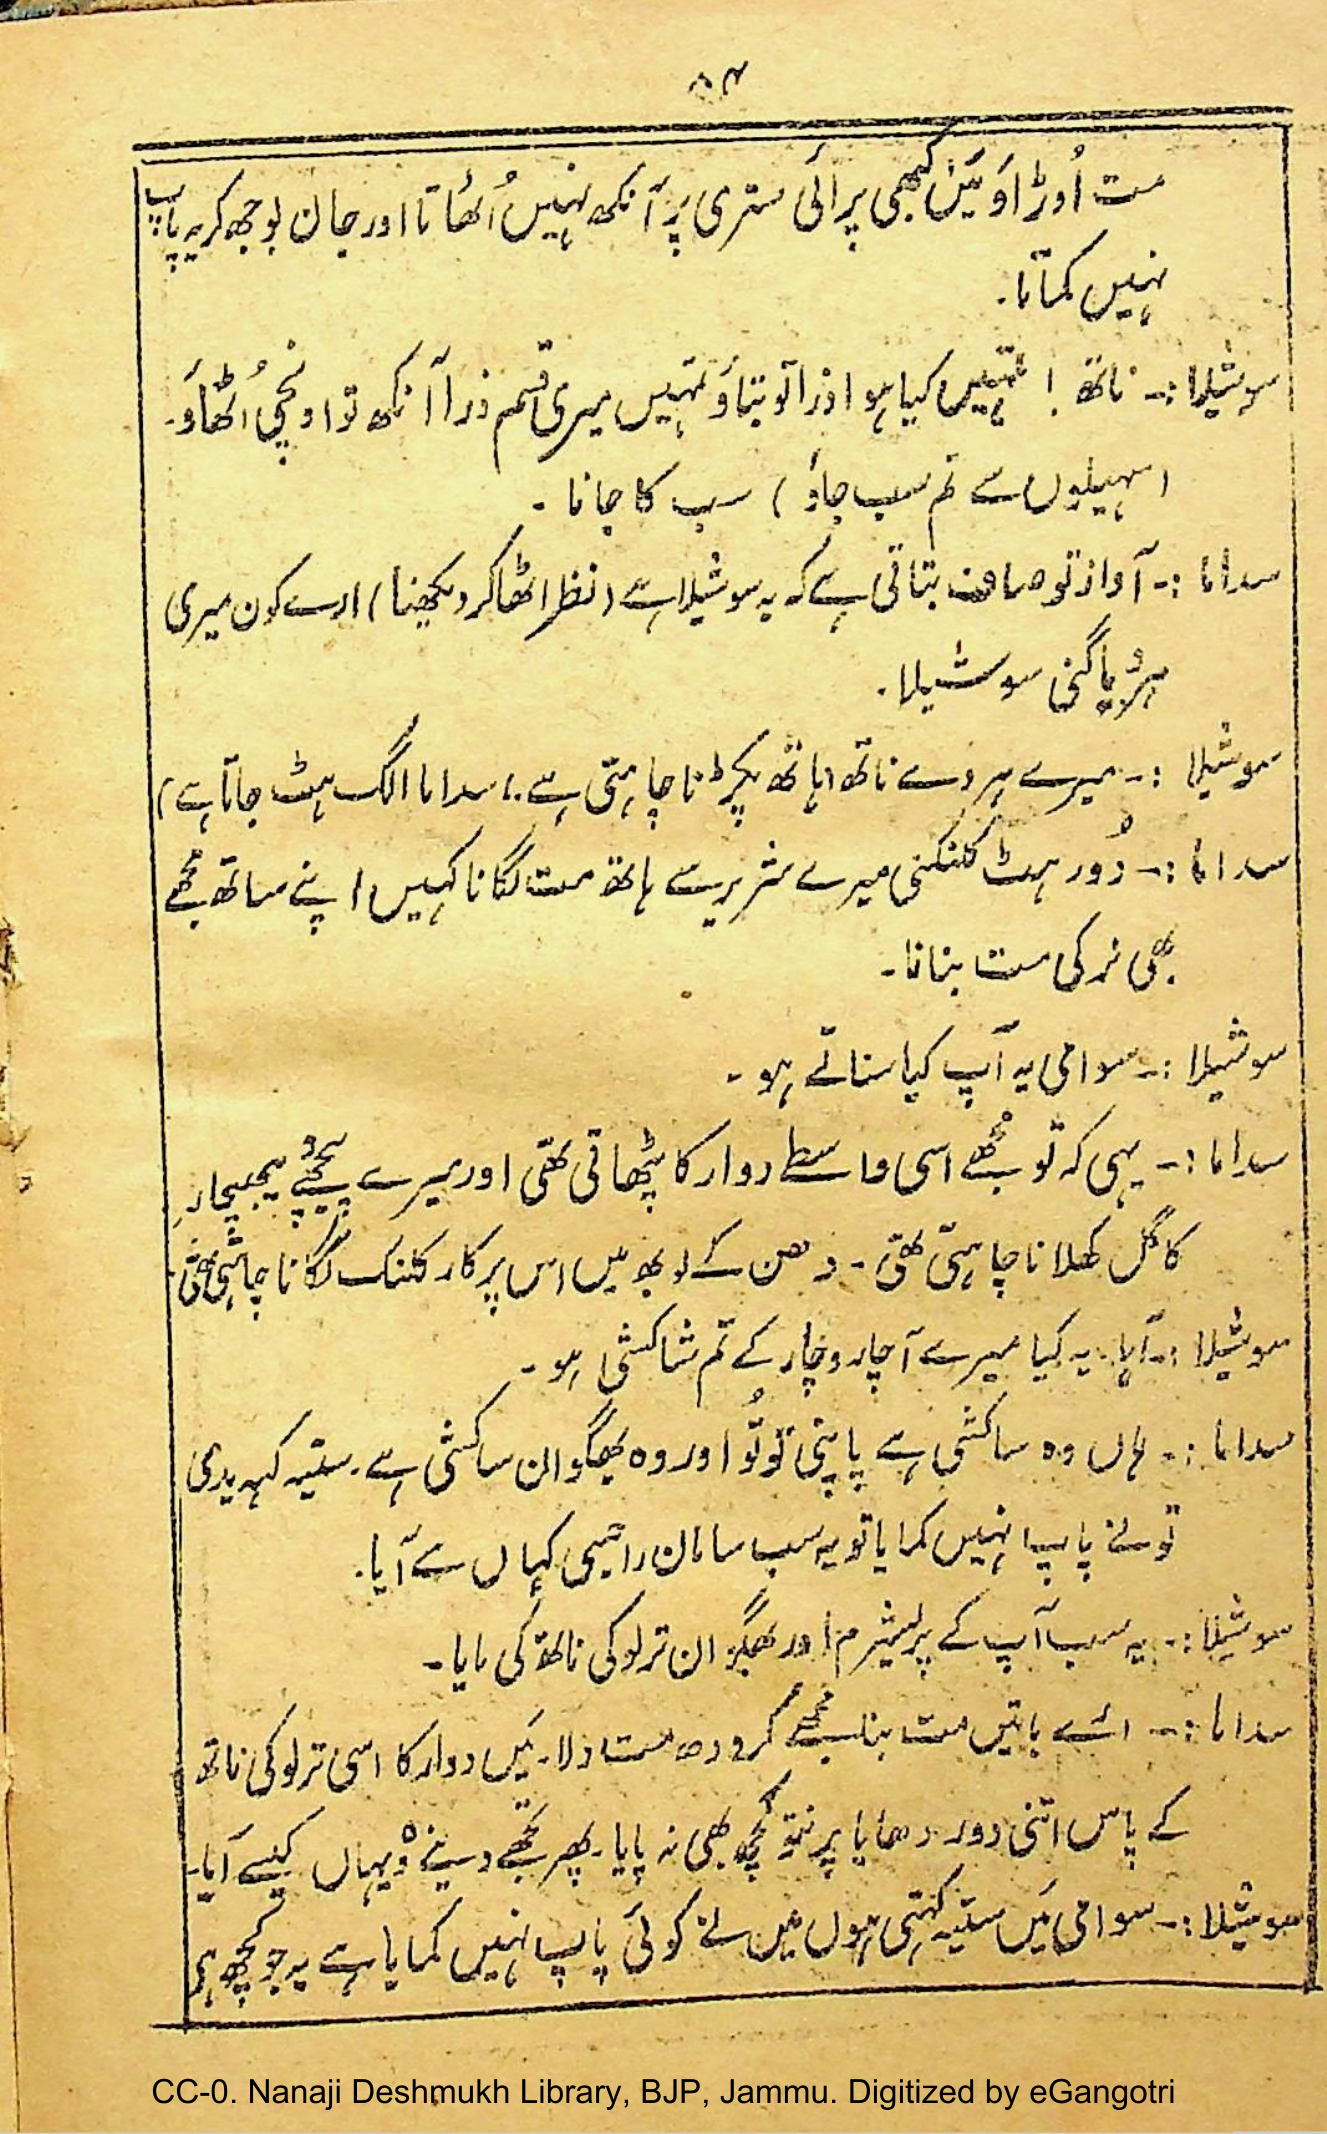 ۸۴
مت اُوڑاؤ میَں کبھی پرائی ستری پر آنکھ نہیں اُٹھاتا اور جان بوجھ کر یہ پاپ
نہیں کماتا۔
سوشیلا :۔ ناتھ ! تمہیں کیا ہوا ذرا تو بتاؤ تمہیں میری قسم ذرا آنکھ تو اونچی اُٹھاؤ۔
(سہیلیوں سے تم سب جاؤ) سب کا جانا ۔
سداما :۔ آواز تو صاف بتاتی ہے کہ یہ سوشیلا ہے (نظر اٹھا کر دیکھنا) ارے کون میری
سوشیلا۔
سوشیلا :۔ میرے ہردے ناتھ (ہاتھ پکڑنا چاہتی ہے ۔ سداما الگ ہٹ جاتا ہے)
سداما :۔ دُور ہٹ کلنکنی میرے شریر سے ہاتھ مت لگانا کہیں اپنے ساتھ مجھے
بھی نرکی مت بنانا۔
سوشیلا :۔ سوامی یہ آپ کیا سناتے ہو ۔
سداما :۔ یہی کہ تو مجھے اسی واسطے دوارکا پٹھاتی تھی اور میرے پیچھے
کا گل کھلانا چاہتی تھی ۔ دھن کے لوبھ میں اس پرکار کلنک لگانا چاہتی تھی
سوشیلا :۔ آہا۔ یہ کیا میرے آچار وچار کے تم شاکشی ہو ۔
سداما :۔ ہاں وہ ساکشی ہے پاپنی تو تُو اور وہ بھگوان ساکشی ہے۔ ستیہ کہہ یدی
تو نے پاپ نہیں کمایا تو یہ سب سامان کہاں سے آیا۔
سوشیلا :۔ یہ سب آپ کے پریشرم اور بھگوان ترلوکی ناتھ کی مایا ۔
سداما :۔ ائے باتیں مت بنا مجھے کرودھ مت دلا۔ میَں دوارکا اسی ترلوکی ناتھ
کے پاس اتنی دور دھایا پرنتو کچھ بھی نہ پایا۔ پھر تجھے دینے وہ یہاں کیسے آیا۔
سوشیلا :۔ سوامی میَں ستیہ کہتی ہوں میں نے کوئی پاپ نہیں کمایا ہے یہ جو کچھ ہم
CC-0. Nanaji Deshmukh Library, BJP, Jammu. Digitized by eGangotri